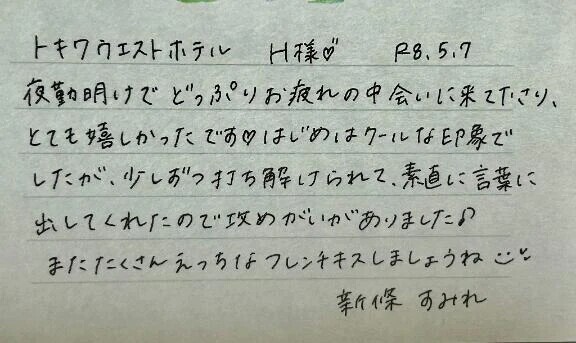 トキワウエストホテル H様♡ R8.5.7
夜勤明けで どっぷりお疲れの中会いに来て下さり、
とても嬉しかったです♡はじめはクールな印象で
したが、少しずつ打ち解けられて、素直に言葉に
出してくれたので攻めがいがありました♪
またたくさんえっちなフレンチキスしましょうね
新條 すみれ